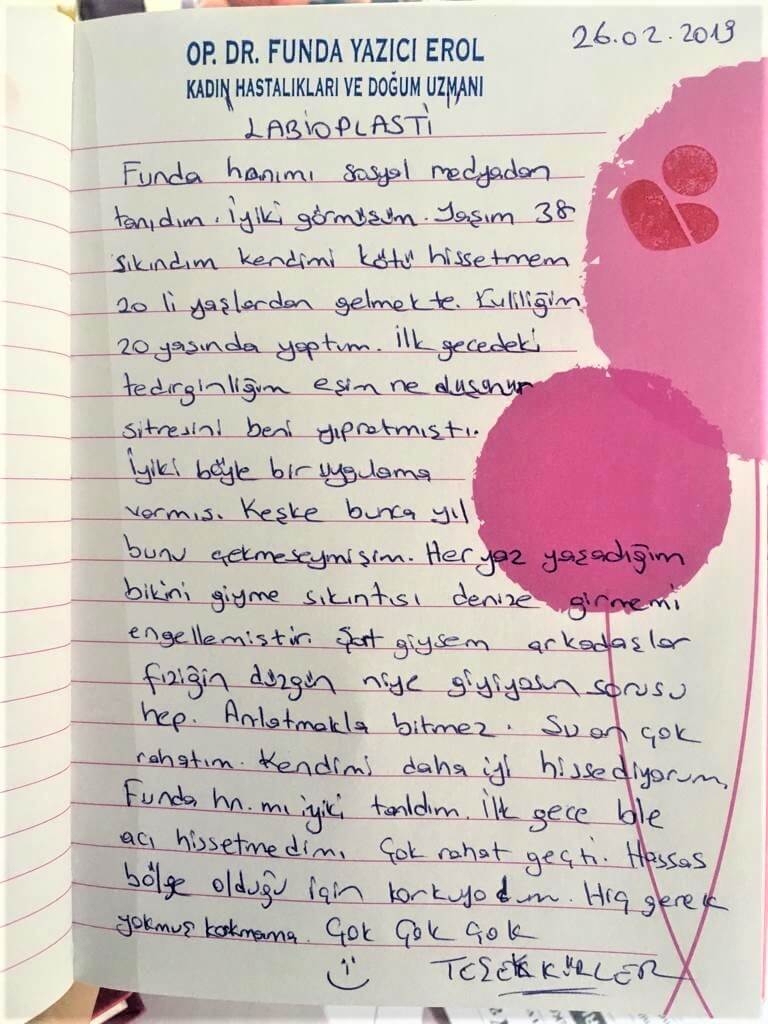 26.02.2019
OP. DR. FUNDA YAZICI EROL
KADIN HASTALIKLARI VE DOĞUM UZMANI
LABİOPLASTİ
Funda hanımı sosyal medyadan
tanıdım. İyiki görmüşüm. Yaşım 38
sıkındım kendimi kötü hissetmem
20 li yaşlardan gelmekte. Evliliğim
20 yaşında yaptım. İlk gecedeki
tedirginliğim eşim ne düşünür
sitresini beni yıpratmıştı.
İyiki böyle bir uygulama
varmış. Keşke bunca yıl
bunu çekmeseymişim. Her yaz yaşadığım
bikini giyme sıkıntısı denize girmemi
engellemiştir. Şort giysem arkadaşlar
fiziğin düzgün niye giyiyosun sorusu
hep. Anlatmakla bitmez. Şu an çok
rahatım. Kendimi daha iyi hissediyorum,
Funda hn. mı iyiki tanıdım. İlk gece bile
acı hissetmedim. Çok rahat geçti. Hassas
bölge olduğu için korkuyodum. Hiç gerek
yokmuş korkmama. Çok Çok Çok
TEŞEKKÜRLER